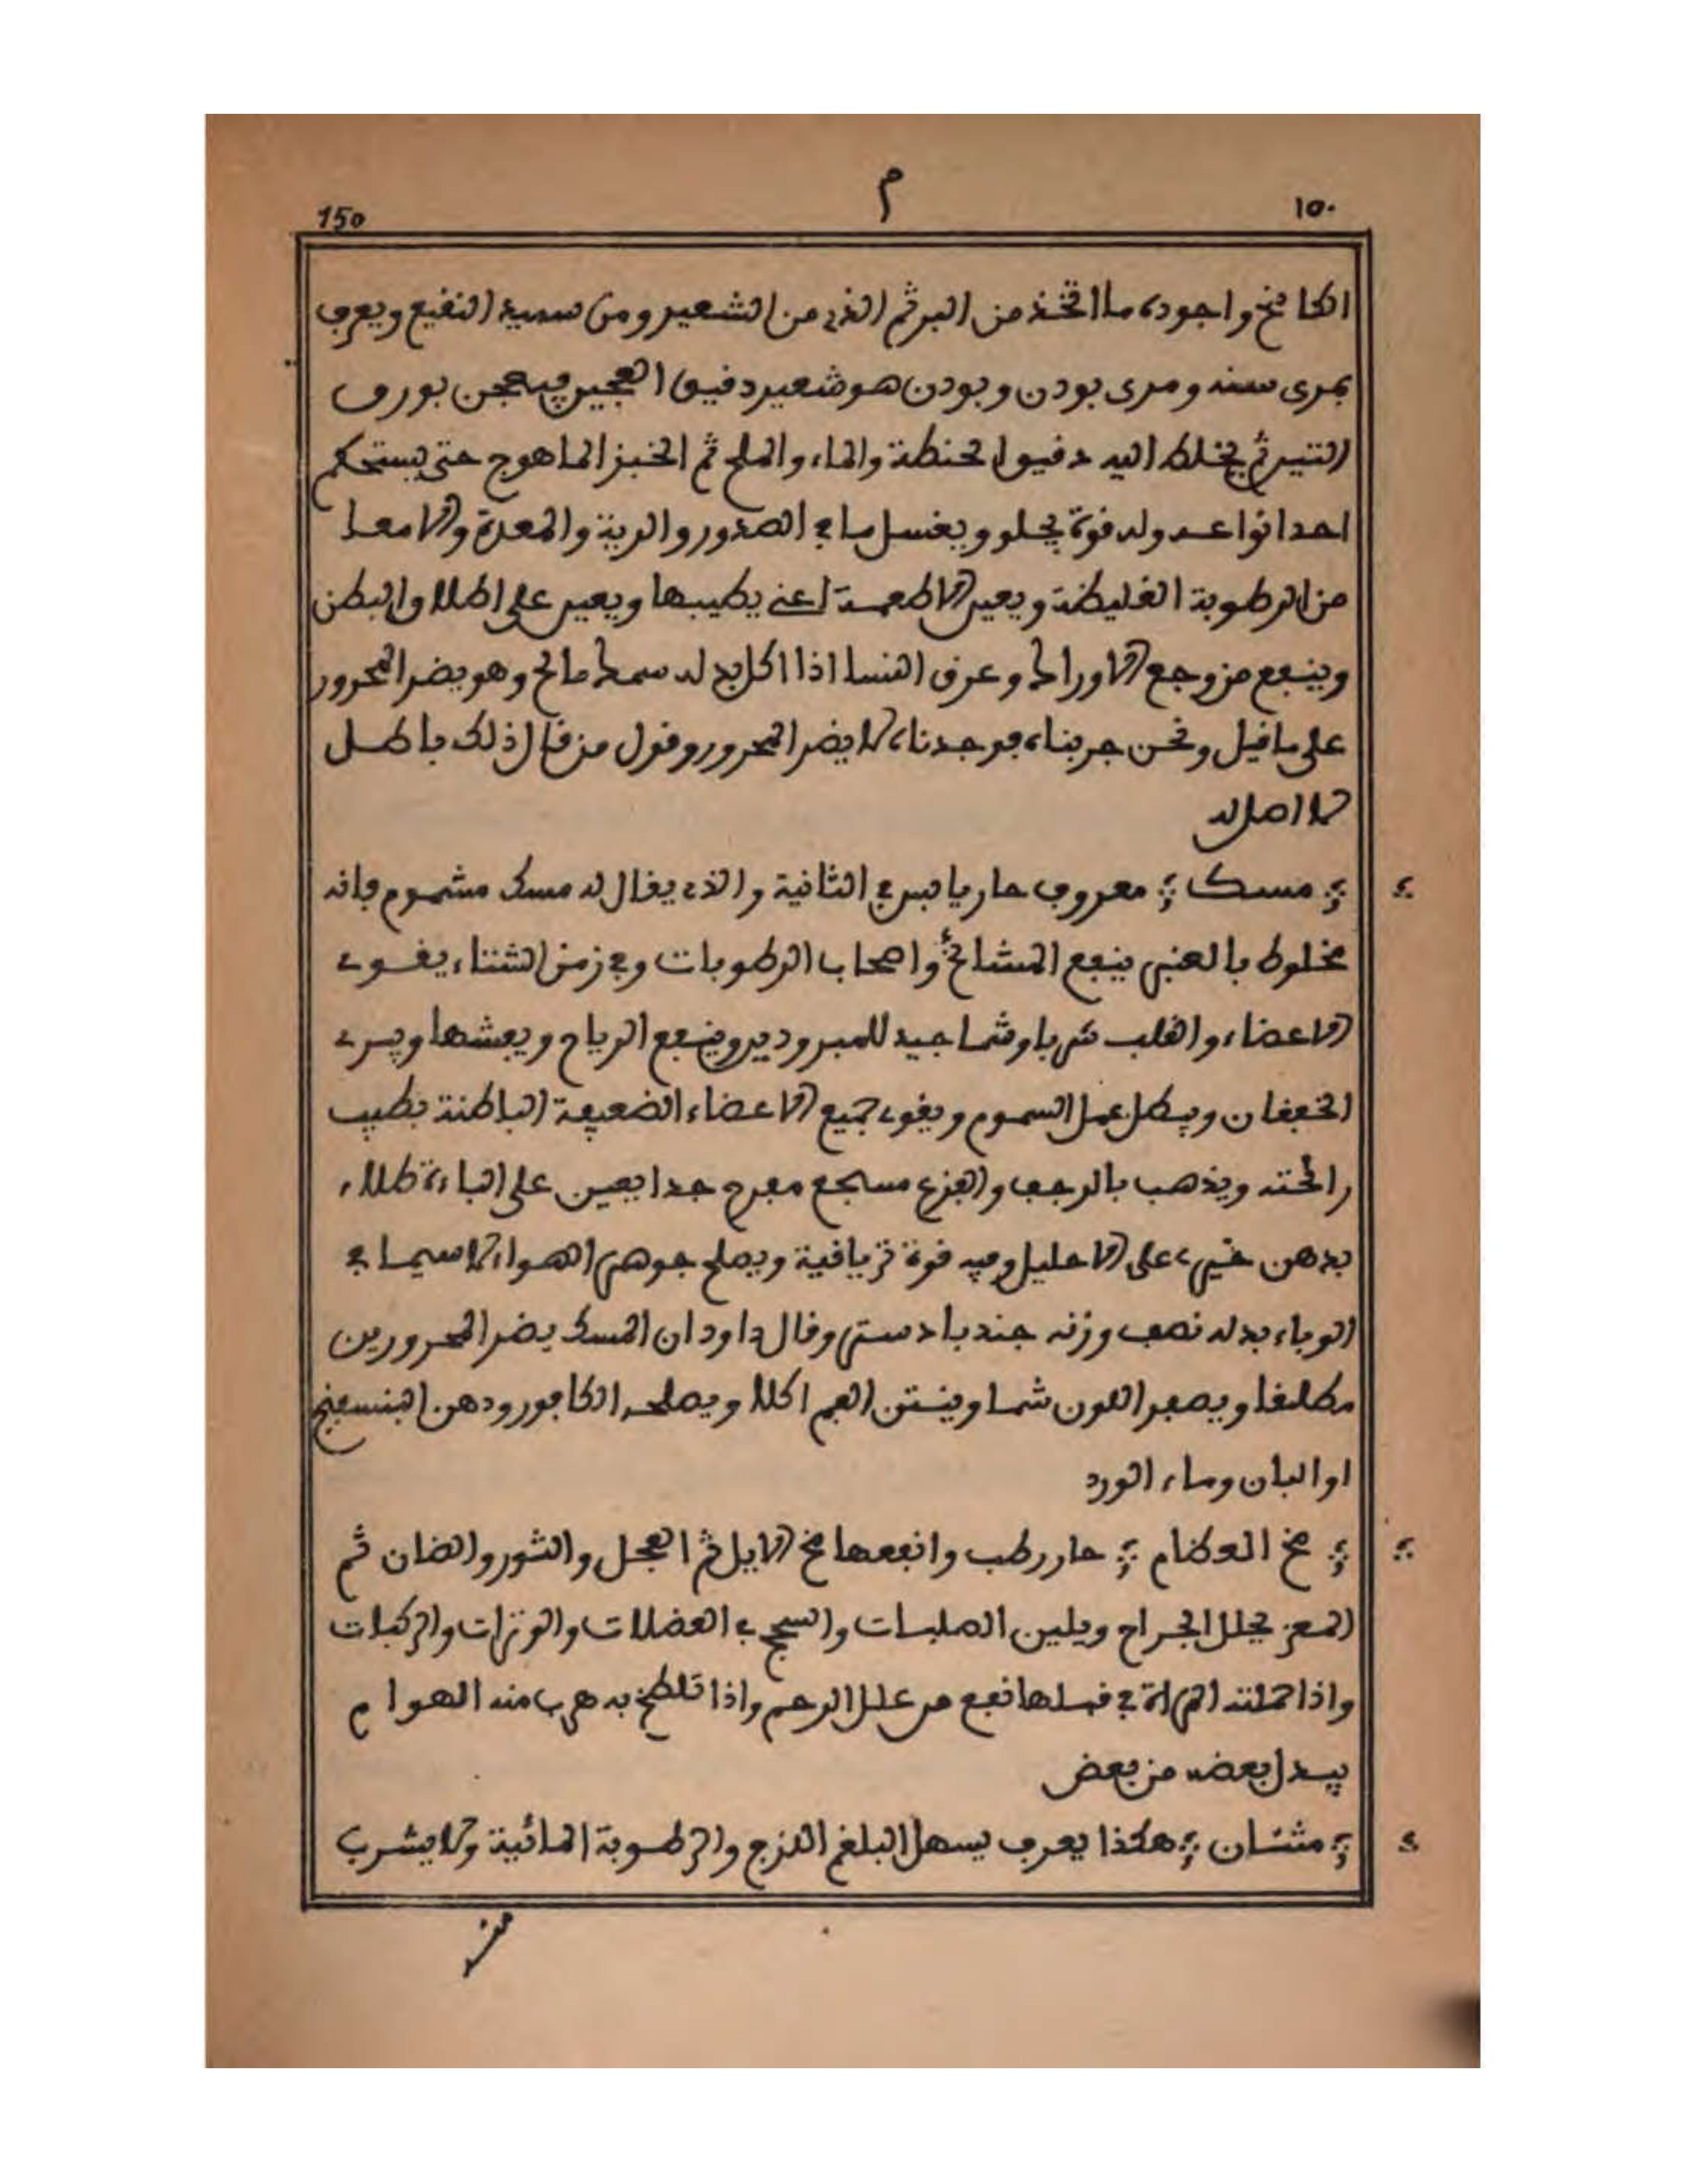 150 م ١٥٠
الكامخ واجوده ما اتخذ من البر ثم الذي من الشعير ومن سميه النقيع ويعرف
بمرى سنه ومرى بودن وبودن هو شعير دقيق العجين فيعجن بورق
التين ثم يخلط اليه دقيق الحنطة والماء والملح ثم الخبز الماهوج حتى يستحكم
احد انواعه وله قوة يجلو ويغسل ما في الصدور والرية والمعدة والامعا
من الرطوبة الغليظة ويعين الاطعمة اعني يطيبها ويعين على اطلا والبطن
وينفع من وجع الاوراك وعرق النسا اذا اكل بدله سمك مالح وهو يضر المحرور
على ما قيل ونحن جربناه فوجدناه لا يضر المحرور وقول من قال ذلك باطل
لا اصل له
مسك معروف حار يابس في الثانية والذي يقال له مسك مشموم فانه
مخلوط بالعنبر ينفع المشائخ واصحاب الرطوبات وفي زمن الشتاء يقوي
الاعضاء والقلب شربا وشما جيد للمبرودين وينفع الرياح ويفشها ويبري
الخفقان ويبطل عمل السموم ويقوي جميع الاعضاء الضعيفة الباطنة بطيب
رائحته ويذهب بالرجف والفزع مسجع مفرح جدا يعين على الباءة طلاء
بدهن خيري على الاحليل وفيه قوة ترياقية ويصلح جوهر الهواء لا سيما في
الوباء بدله نصف وزنه جندبادستر وقال داود ان المسك يضر المحرورين
مطلقا ويصفر اللون شما وينتن الفم اكلا ويصلحه الكافور ودهن البنسفنج
او البان وماء الورد
مخ العظام حار رطب وانفعها مخ الايل ثم العجل والثور والضان ثم
المعز يحلل الجراح ويلين الصلبات والسجج في العضلات والوترات والركبات
واذا حملته المراة في قبلها نفع من علل الرحم واذا تلطخ به هرب منه الهوام
يبدل بعضه من بعض
مثنان هكذا يعرف يسهل البلغم اللزج والرطوبة المائية ولا يشرب
منه